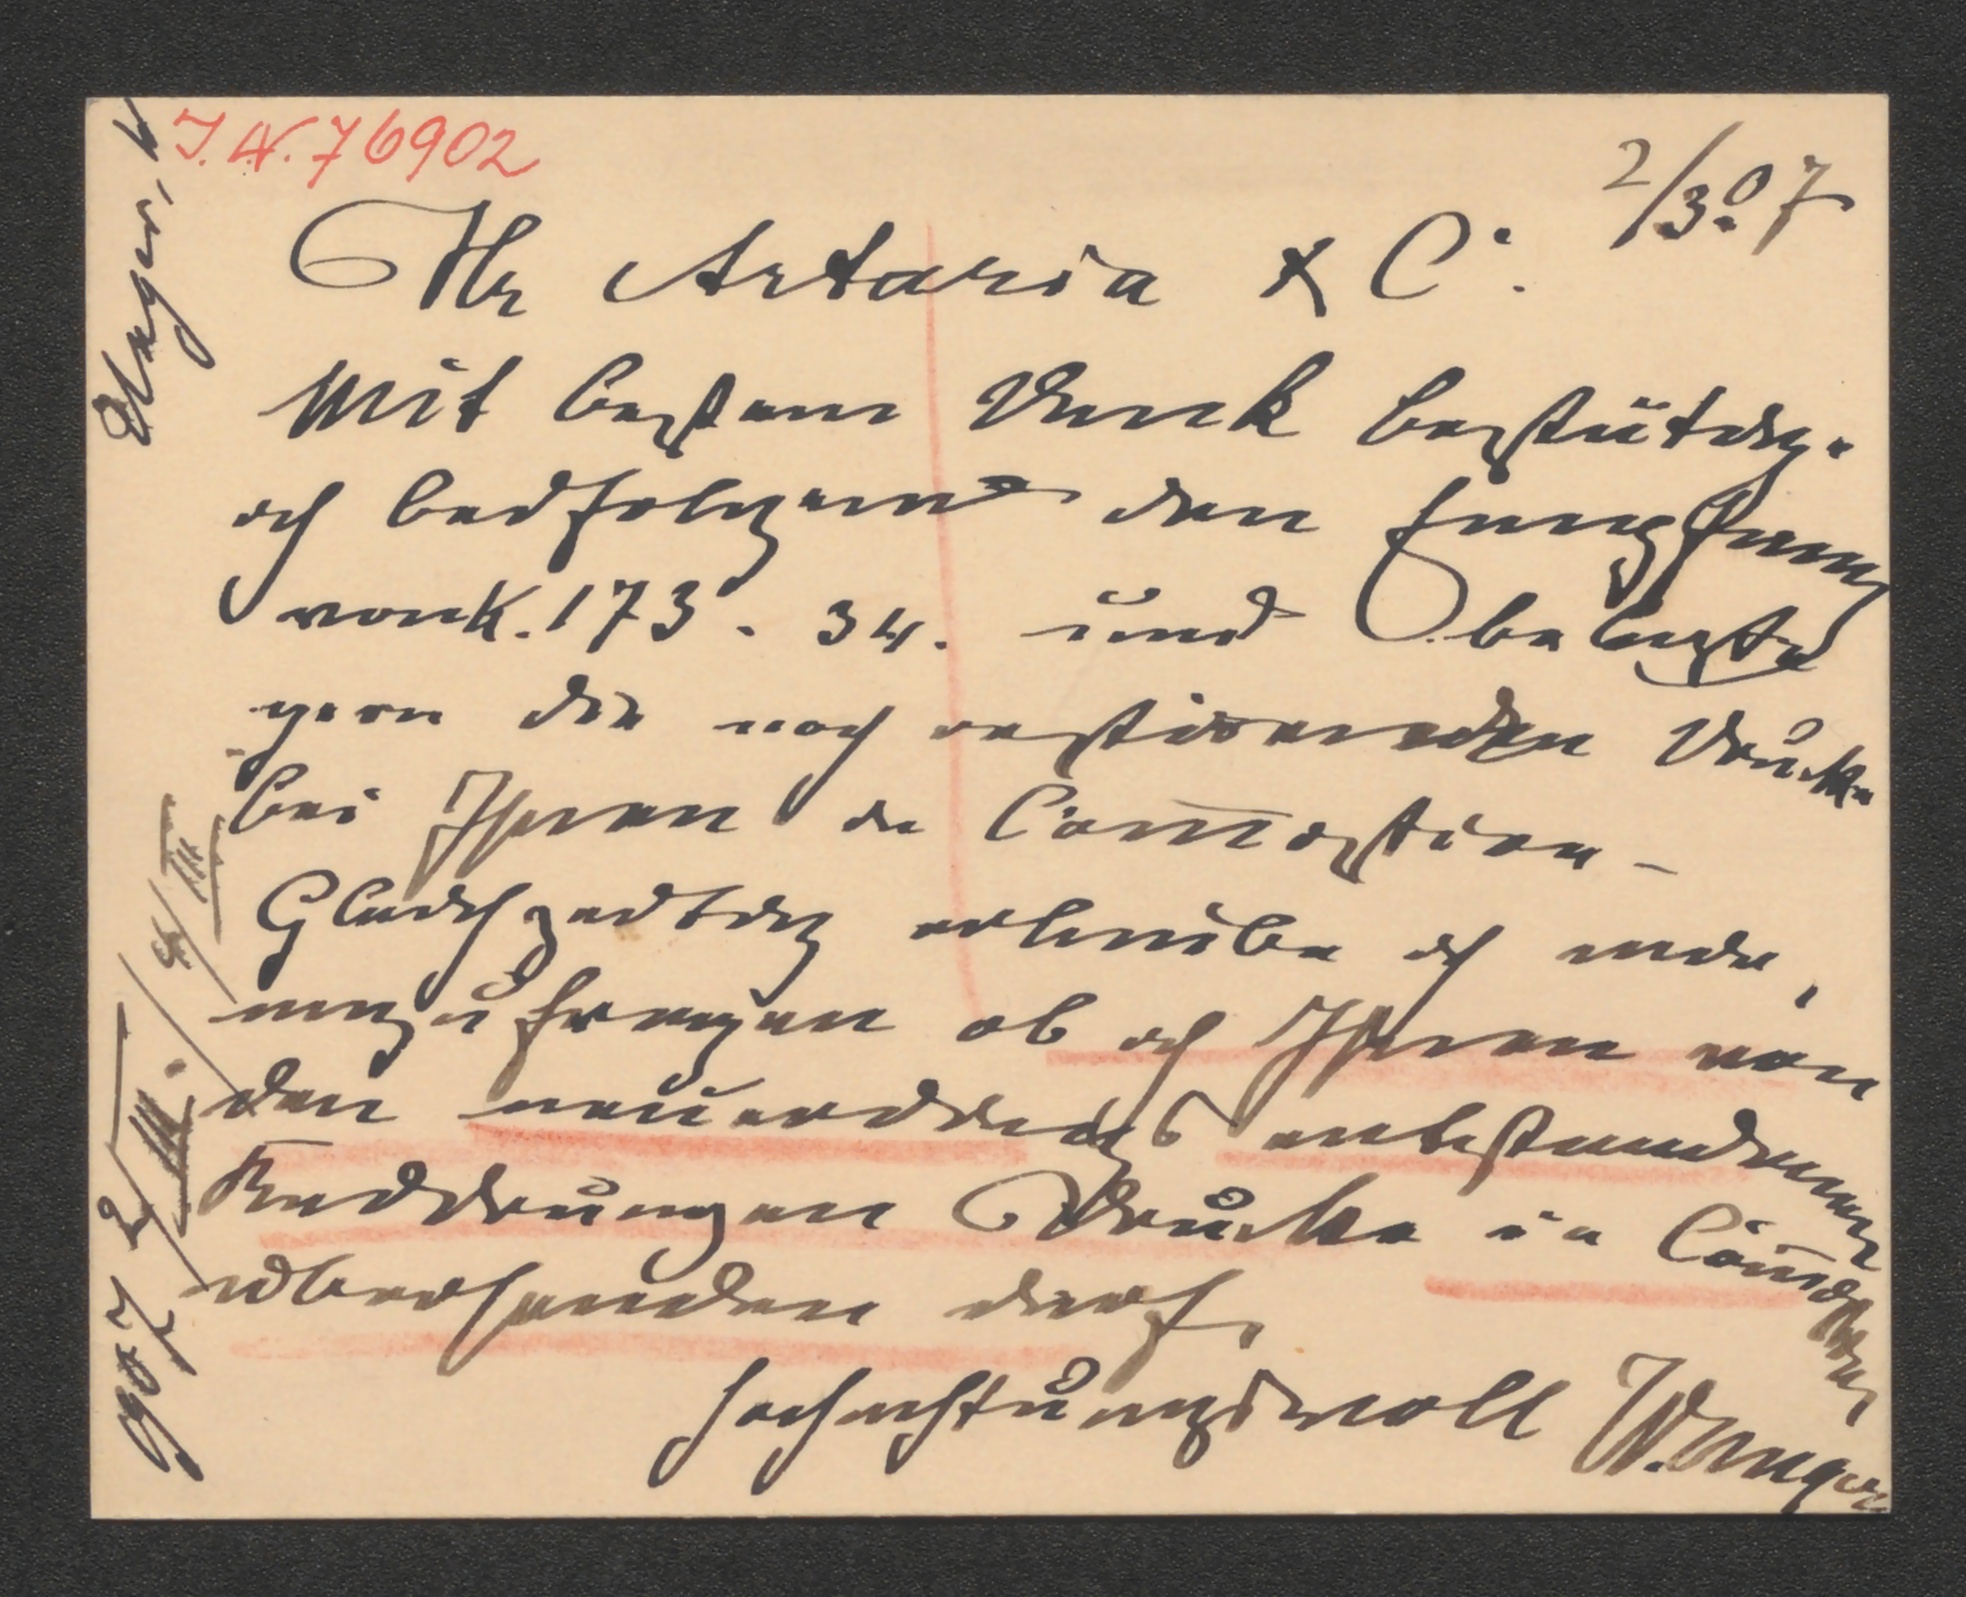 I.N. 76902
2/3. 07
Hr Artaria & Co.
Mit bestem Dank bestätige
ich beifolgend den Empfang
von K. 173. 34. und belaste
gern die noch restirenden Drucke
bei Ihnen in Com̅ission –
Gleichzeitig erlaube ich mir,
anzufragen ob ich Ihnen von
den neuerdings entstandenen
Radirungen Drucke in Com̅ission
übersenden darf.
Hochachtungsvoll W. Unger
Unger, W
907 2/III. / 4/III